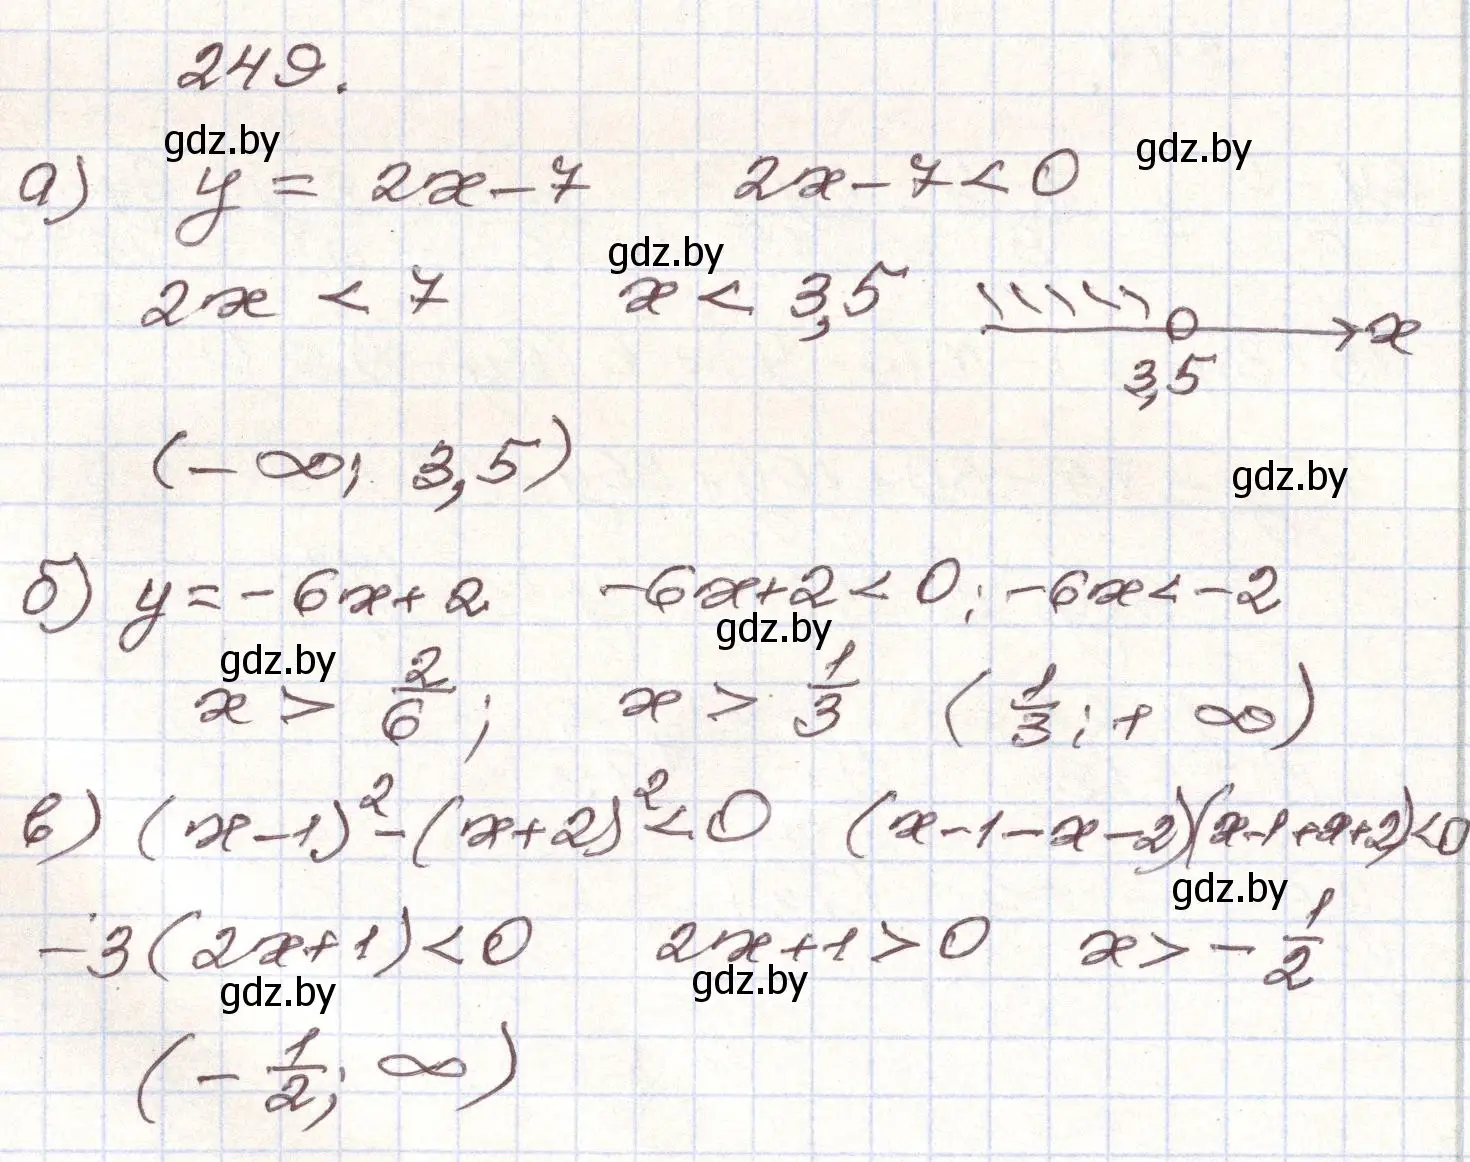 249.
gdz.by
gdz.by
а) y = 2x - 7    2x - 7 < 0
gdz.by
2x < 7    x < 3,5    x
3,5
(-∞; 3,5)
gdz.by
б) y = -6x + 2    -6x + 2 < 0; -6x < -2
gdz.by
gdz.by
x > 2/6;    x > 1/3    (1/3; +∞)
в) (x - 1)² - (x + 2)² < 0    (x - 1 - x - 2)(x - 1 + x + 2) < 0
gdz.by
-3(2x + 1) < 0    2x + 1 > 0    x > -1/2
gdz.by
gdz.by
(-1/2; ∞)